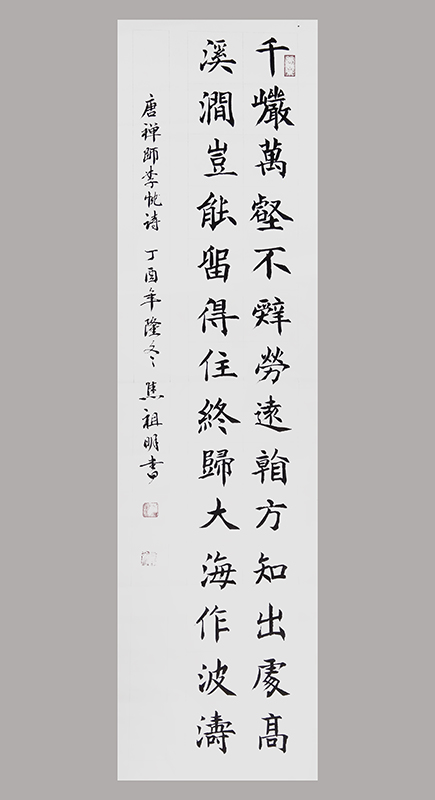 千巖萬壑不辭勞遠㸔方知出處髙
溪澗豈能留得住終歸大海作波濤
唐禅師李忱诗 丁酉年隆冬 焦祖明書